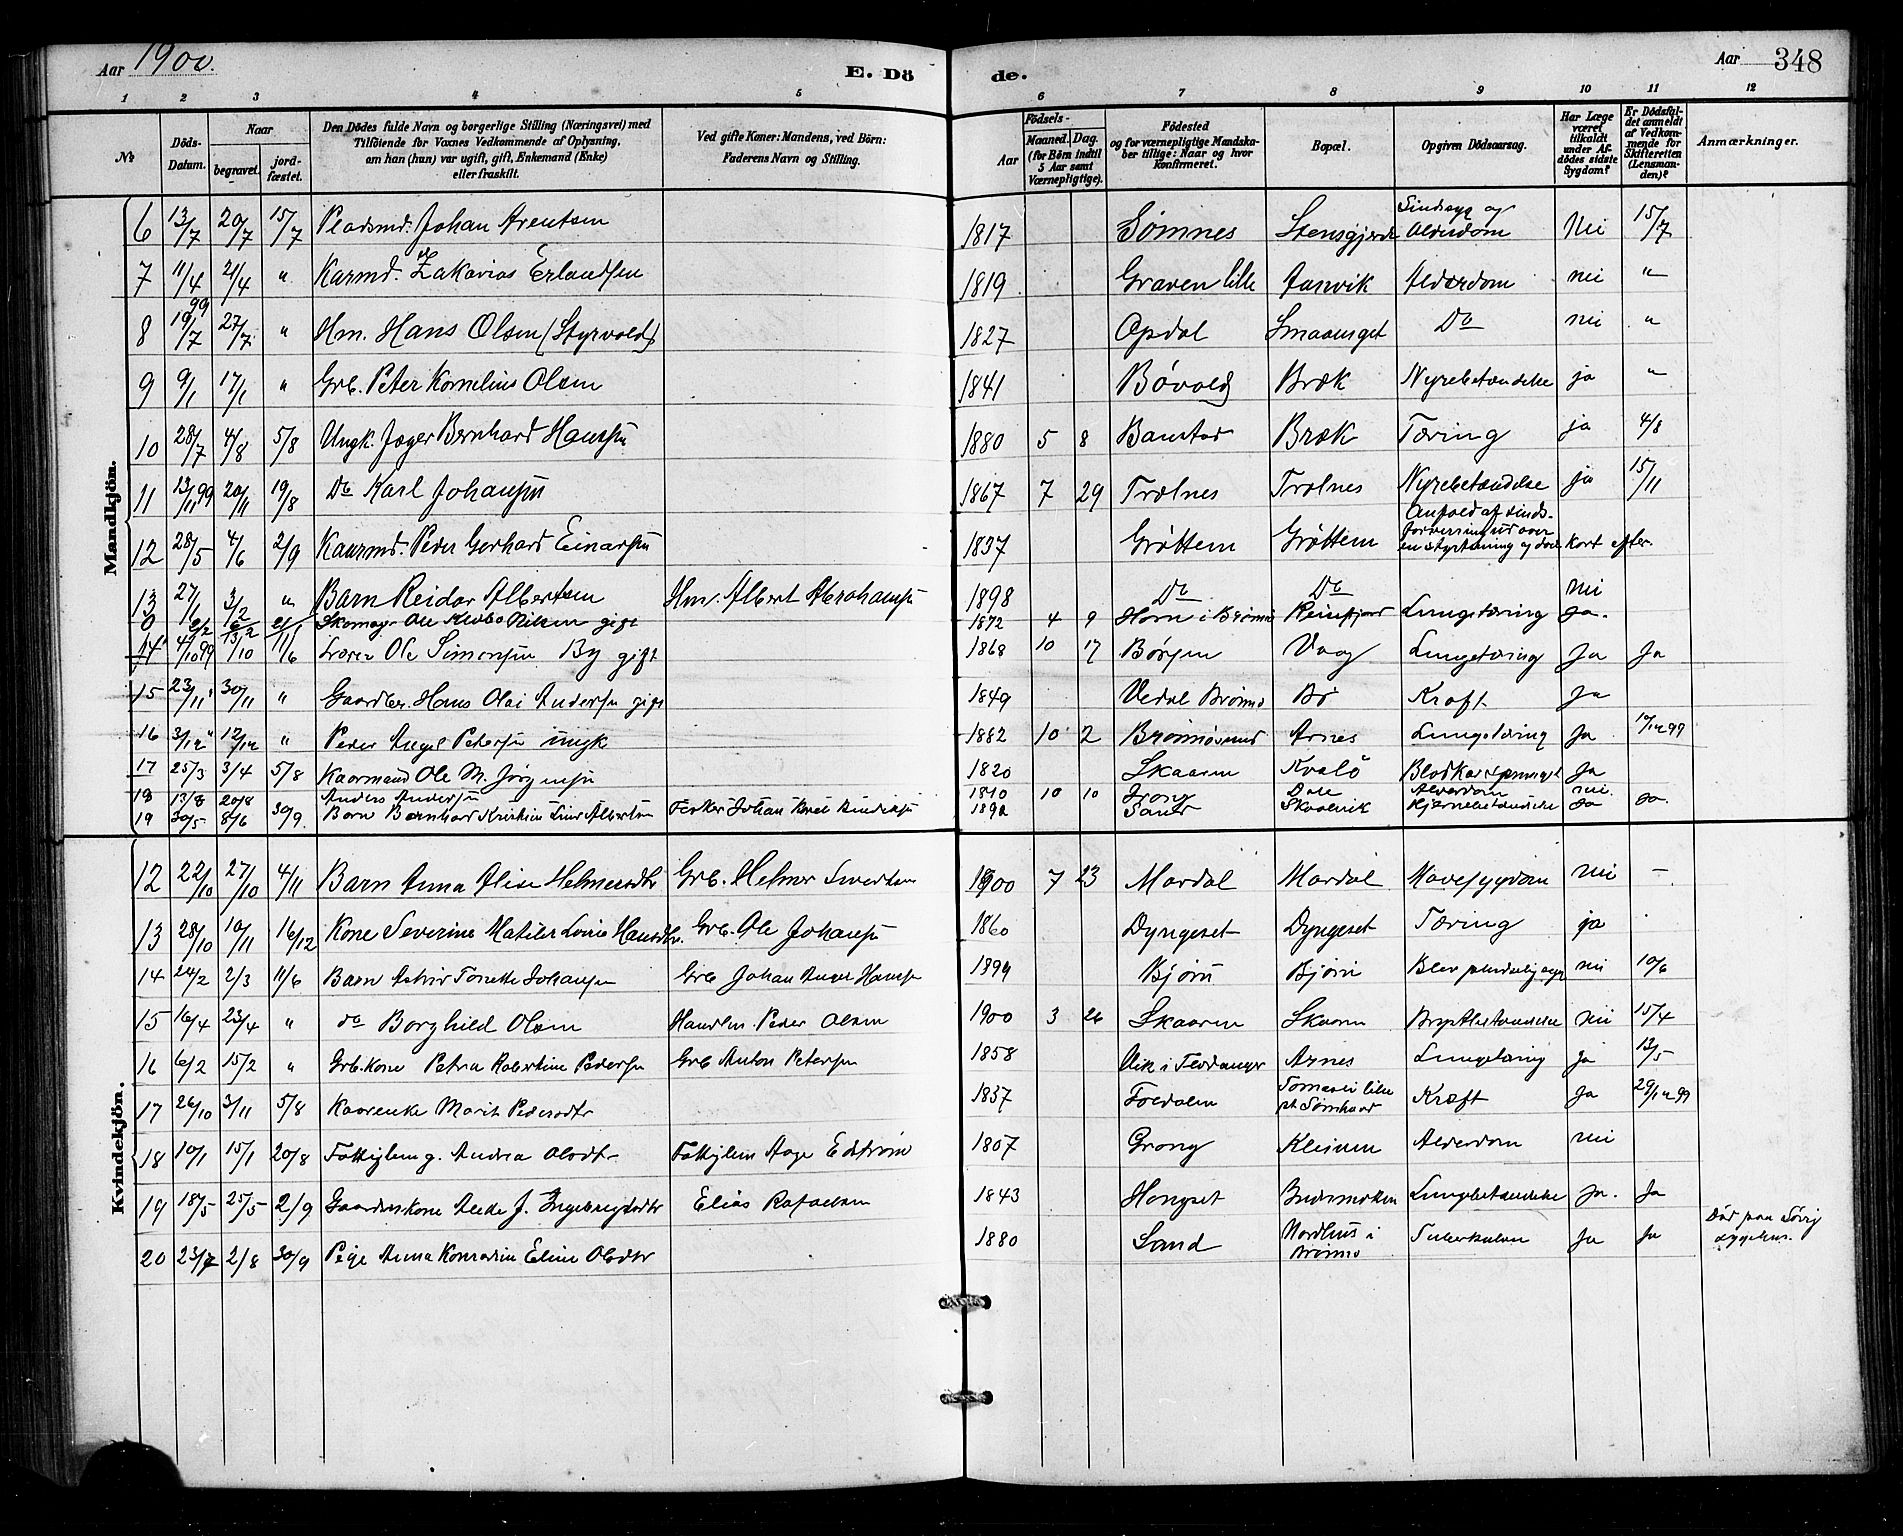 Aar 1900.
E. Dö
de.
Aar 348
1 2 3 4 5 6 7 8 9 10 11 12
No
Döds-Datum.
Naar
begravet.
jordfæstet.
Den Dödes fulde Navn og borgerlige Stilling (Næringsvei) med
Tilföiende for Voxnes Vedkommende af Oplysning,
om han (hun) var ugift, gift, Enkemand (Enke)
eller fraskilt.
Ved gifte Koner: Mandens, ved Börn:
Faderens Navn og Stilling.
Födsels-
Aar
Maaned. Dag.
(for Börn indtil
5 Aar samt
Værnepligtige).
Födested
og for værnepligtige Mandskaber tillige: Naar og hvor
konfirmeret.
Bopæl.
Opgiven Dödsaarsag.
Har Læge
været
tilkaldt
under Afdödes sidste
Sygdom?
Er Dödsfaldet anmeldt
af Vedkommende for
Skifteretten
(Lensmanden)?
Anmærkninger.
Mandkjön.
6 13/7 20/7 15/7 Pladsmd. Johan Arentsen 1817 Sömnes Stensgjerde Sindsyg og Alderdom Nei 15/7
7 11/4 21/4 " Karmd. Zakarias Erlandsen 1819 Graven lille Aarsvik Alderdom nei "
8 19/7 99 27/7 " Hm. Hans Olsen (Styrvold) 1827 Opdal Smaaenget Do nei "
9 9/1 17/1 " Grb. Peter Kornelius Olsen 1841 Bövold Bræk Nyrebetændelse ja "
10 28/7 4/8 5/8 Ungk. Jæger Bernhard Hansen 1880 5 8 Banstad Bræk Tæring ja 4/8
11 13/11 99 20/11 19/8 Do Karl Johansen 1867 7 29 Trælnes Trælnes Nyrebetændelse ja 15/11
12 28/5 4/6 2/9 Kaarmd. Peder Gerhard Einarsen 1837 Gröttem Gröttem Anfald af sindsforvirring ud over en styrtning og døde kort efter.
13 27/1 3/2 " Barn Reidar Albertsen Hm. Albert Abrahamsen 1898 Do Do nei
Skomager Ole Nilsen gift 1872 4 9 Horn i Brönnö Reinfjord Lungetæring Ja.
14 4/10 99 13/10 11/6 Lærer Ole Simonsen By gift 1868 10 17 Börsen Vaag Lungetæring Ja Ja
15 23/11 " 30/11 " Gaardbr. Hans Olai Andersen gift 1849 Vedal Brönnö Bö Kræft Ja
16 3/12 " 12/12 " Peder Angel Petersen ungk 1882 10 2 Brönnösund Arnes Lungetæring Ja 17/12 99
17 25/3 3/4 5/8 Kaarmand Ole M. Jörgensen 1820 Skaaren Kvalö Ja
18 13/8 20/8 Anders Andersen 1810 10 10 Grong Dale Alderdom nei.
19 30/5 8/6 30/9. Barn Bernhard Kristian Albertsen Fisker Johan 189 Hjernebetændelse Ja Ja.
Kvindekjön.
12 22/10 27/10 4/11 Barn Anna Alise Helmersdtr Grb. Helmer Sivertsen 1900 7 23 Mardal Mardal Mavesygdom nei –
13 28/10 10/11 16/12 Kone Severine Matilde Lovise Hansdtr. Grb. Ole Johansen 1860 Dyngeset Dyngeset Tæring ja
14 24/2 2/3 11/6 Barn Astrid Tonette Johansen Grb Johan Hansen 1899 Bjørn Bjørn Blev pludselig syg nei 10/6
15 16/4 23/4 " do Borghild Olsen Handlm. Peder Olsen 1900 3 26 Skaaren Skaaren Brystbetændelse nei 15/4
16 6/2 15/2 " Grb. Kone Petra Robertine Pedersen Grb Anton Petersen 1858 Vik i Arnes Lungetæring ja 13/5
17 26/10 3/11 5/8 Kaarenke Marit Pedersdtr 1837 Foldalen Kræft Ja 29/12 99
18 10/1 15/1 20/8 Fattiglem g. Andrea Olsdtr Fattiglem Aage Edström 1807 Grong Kleiven Alderdom nei
19 18/5 25/5 2/9 Gaardm.kone J. Ingebrigtsdtr Elias Rafaelsen 1843 Hongset Lungebetændelse Ja. Ja
20 23/7 2/8 30/9 Pige Anna Konradine Eline Olsdtr 1880 Sand Nordhus i Brönnö Tuberkulose Ja Ja Död paa Sövig sygehus.